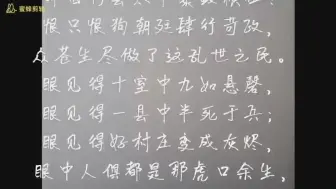 蜜蜂剪辑
恨只恨狗朝廷肆行苛政，
众苍生尽做了这乱世之民。
眼见得十室中九如悬磬，
眼见得一县中半死于兵；
眼见得好村庄变成灰烬，
眼中人俱都是那虎口余生，